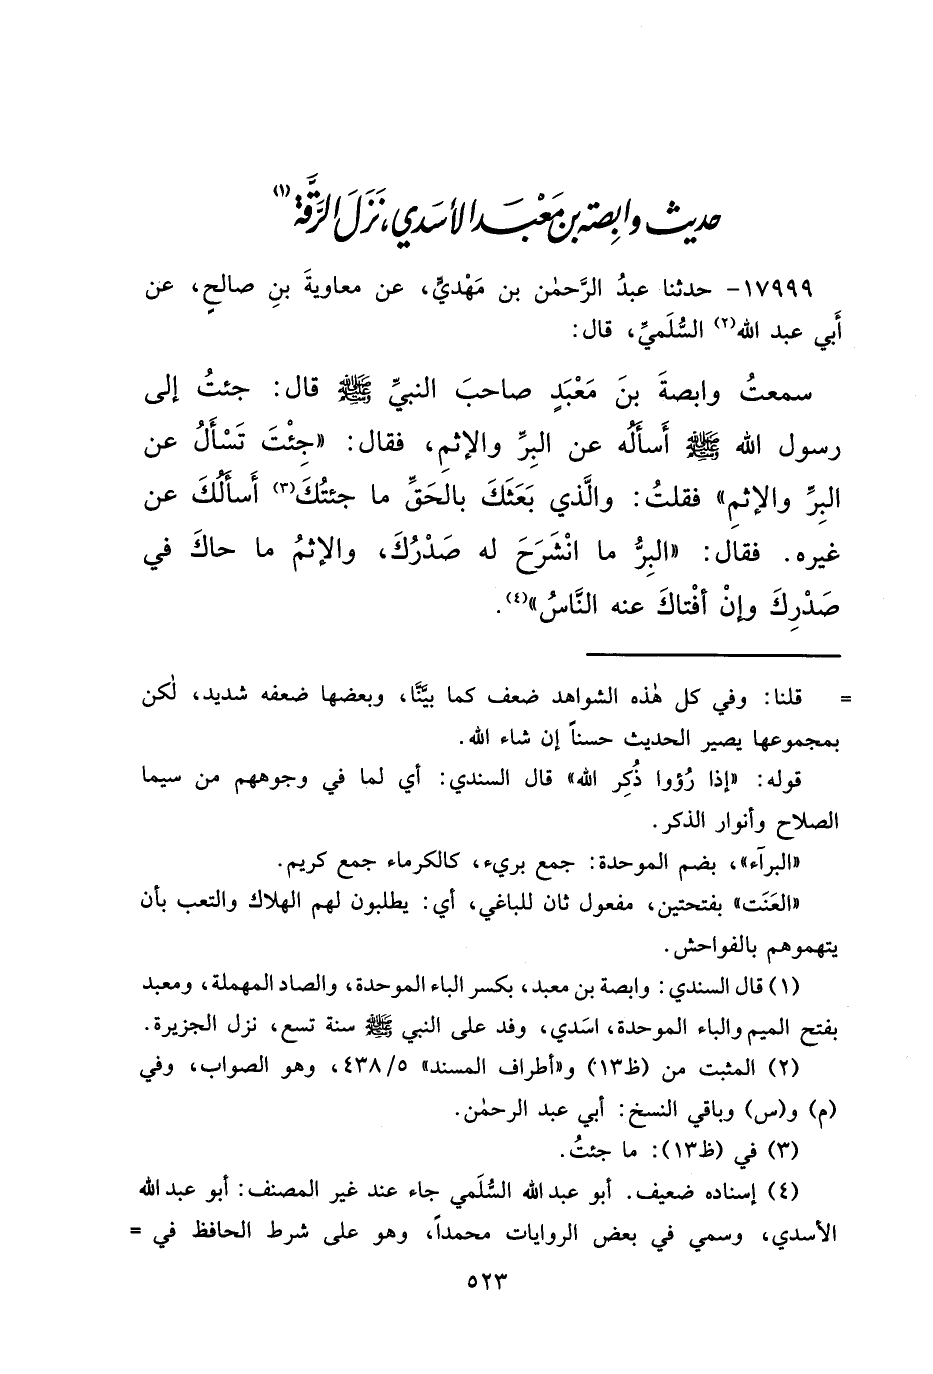 حديث وابصة بن مَعْبَد الأسَدي، نَزَلَ الرَّقَّة (١)
١٧٩٩٩- حدثنا عبدُ الرَّحمٰن بن مَهْديٍّ، عن معاويةَ بنِ صالحٍ، عن
أَبي عبد الله(٢) السُّلَميِّ، قال:
سمعتُ وابصةَ بنَ مَعْبَدٍ صاحبَ النبيِّ ﷺ قال: جئتُ إلى
رسول الله ﷺ أَسأَلُه عن البِرِّ والإثمِ، فقال: «جِئْتَ تَسْأَلُ عن
البِرِّ والإثمِ» فقلتُ: والَّذي بَعَثَكَ بالحَقِّ ما جئتُكَ(٣) أَسأَلُكَ عن
غيره. فقال: «البِرُّ ما انْشَرَحَ له صَدْرُكَ، والإثمُ ما حاكَ في
صَدْرِكَ وإنْ أفْتاكَ عنه النَّاسُ»(٤).
= قلنا: وفي كل هٰذه الشواهد ضعف كما بيَّنَّا، وبعضها ضعفه شديد، لٰكن
بمجموعها يصير الحديث حسناً إن شاء الله.
قوله: «إذا رُؤوا ذُكِر الله» قال السندي: أي لما في وجوههم من سيما
الصلاح وأنوار الذكر.
«البرآء»، بضم الموحدة: جمع بريء، كالكرماء جمع كريم.
«العَنَت» بفتحتين، مفعول ثان للباغي، أي: يطلبون لهم الهلاك والتعب بأن
يتهموهم بالفواحش.
(١) قال السندي: وابصة بن معبد، بكسر الباء الموحدة، والصاد المهملة، ومعبد
بفتح الميم والباء الموحدة، اسَدي، وفد على النبي ﷺ سنة تسع، نزل الجزيرة.
(٢) المثبت من (ظ١٣) و«أطراف المسند» ٤٣٨/٥، وهو الصواب، وفي
(م) و(س) وباقي النسخ: أبي عبد الرحمٰن.
(٣) في (ظ١٣): ما جئتُ.
(٤) إسناده ضعيف. أبو عبد الله السُّلَمي جاء عند غير المصنف: أبو عبد الله
الأسدي، وسمي في بعض الروايات محمداً، وهو على شرط الحافظ في =
٥٢٣